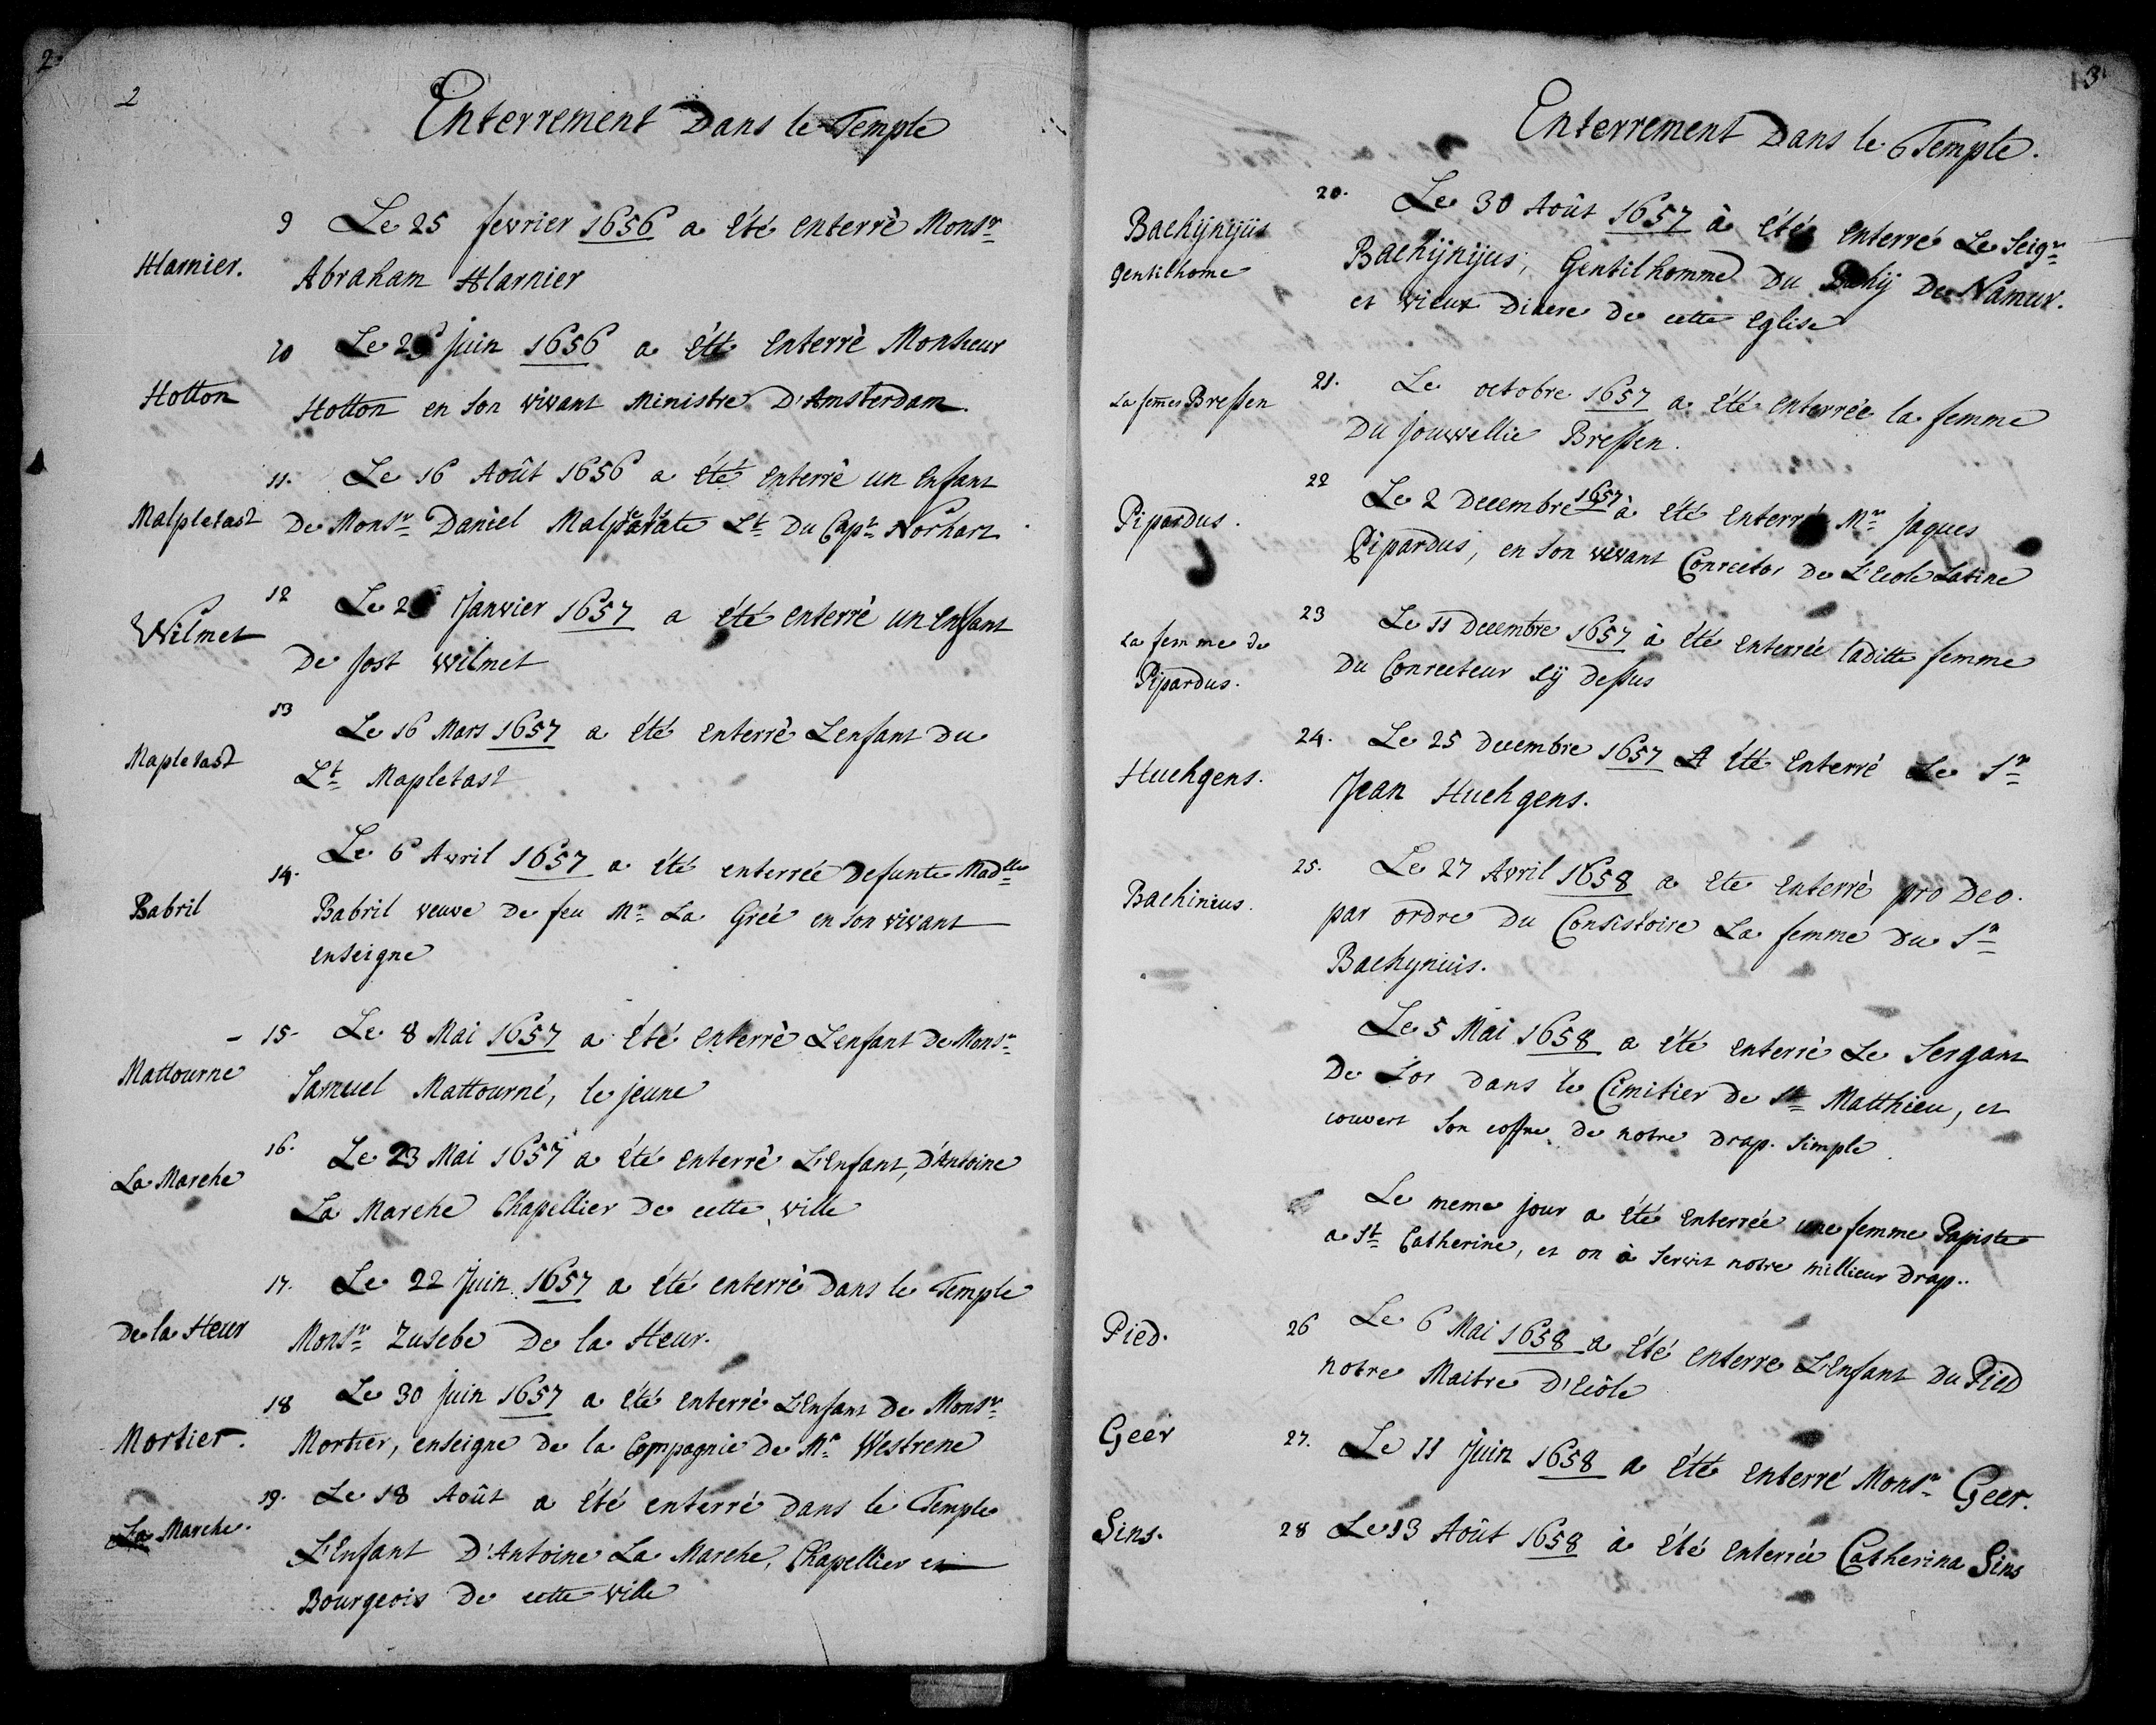 2
2
Enterrement Dans le Temple
9 Le 25 fevrier 1656 a été enterrè Monsr
Harnier.
Abraham Harnier
10 Le 2 Juin 1656 a été enterrè Monsieur
Hotton
Hotton en son vivant Ministre D'Amsterdam.
11. Le 16 Août 1656 a été enterrè un Enfant
Malpletast
De Monsr Daniel Lt Du Capt Norhart
12 Le 2 Janvier 1657 a été enterrè un Enfant
Wilmet
De Jost Wilmet
13 Le 16 Mars 1657 a été enterrè Lenfant Du
Mapletast
Lt Mapletast
14. Le 6 Avril 1657 a été enterrée Defunte Madlle
Babril
Babril veuve De feu Mr La Greé en son vivant
enseigne
- 15- Le 8 Mai 1657 a été enterrè Lenfant De Monsr
Mattourne
Samuel Mattourné, le jeune
16. Le 23 Mai 1657 a été enterrè L'Enfant, D'Antoine
La Marche
La Marche Chapellier De cette ville
17. Le 22 Juin 1657 a été enterrè Dans le Temple
De la Heur
Monsr Zusebe De la Heur.
18 Le 30 Juin 1657 a été enterré L'Enfant De Monsr
Mortier.
Mortier, enseigne De la Compagnie De Mr Westrene
19. Le 18 Août a été enterré Dans le Temple
La Marche.
L'Enfant D'Antoine La Marche, Chapellier et
Bourgeois De cette Ville
3
Enterrement Dans le Temple.
20. Le 30 Août 1657 à été enterré Le Seigr
Bachijnijus
Gentilhome
Bachijnijus, Gentilhomme Du De Namur.
et vieux Diacre De cette Eglise
21. Le octobre 1657 a été enterrée la femme
La femme Bressen
Du Jouwellie Bressen.
22 Le 2 Decembre 1657 à été enterré Mr Jaques
Pipardus.
Pipardus, en son vivant Conrector De L'Ecole Latine
23 Le 11 Decembre 1657 à été enterrée laditte femme
La femme De
Pipardus.
Du Conrecteur cij Dessus
24. Le 25 Decembre 1657 A été enterré Le Sr
Huchgens.
Jean Huchgens.
25. Le 27 Avril 1658 a ete enterrè pro Deo.
Bachinius.
par ordre Du Consistoire La femme Du Sr
Bachynius.
Le 5 Mai 1658 a été enterré Le Sergant
De Lor dans le Cimitier de St Matthieu, et
couvert Son coffre De notre Drap. Simple
Le meme jour a été enterrée une femme Papiste
a St Catherine, et on à Servit notre millieur Drap..
26 Le 6 Mai 1658 a été enterre L'Enfant Du Pied
Pied.
notre Maitre D'Ecôle
Geer
27. Le 11 Juin 1658 a été enterré Monsr Geer.
Sins.
28 Le 13 Août 1658 à été enterrée Catherina Sins